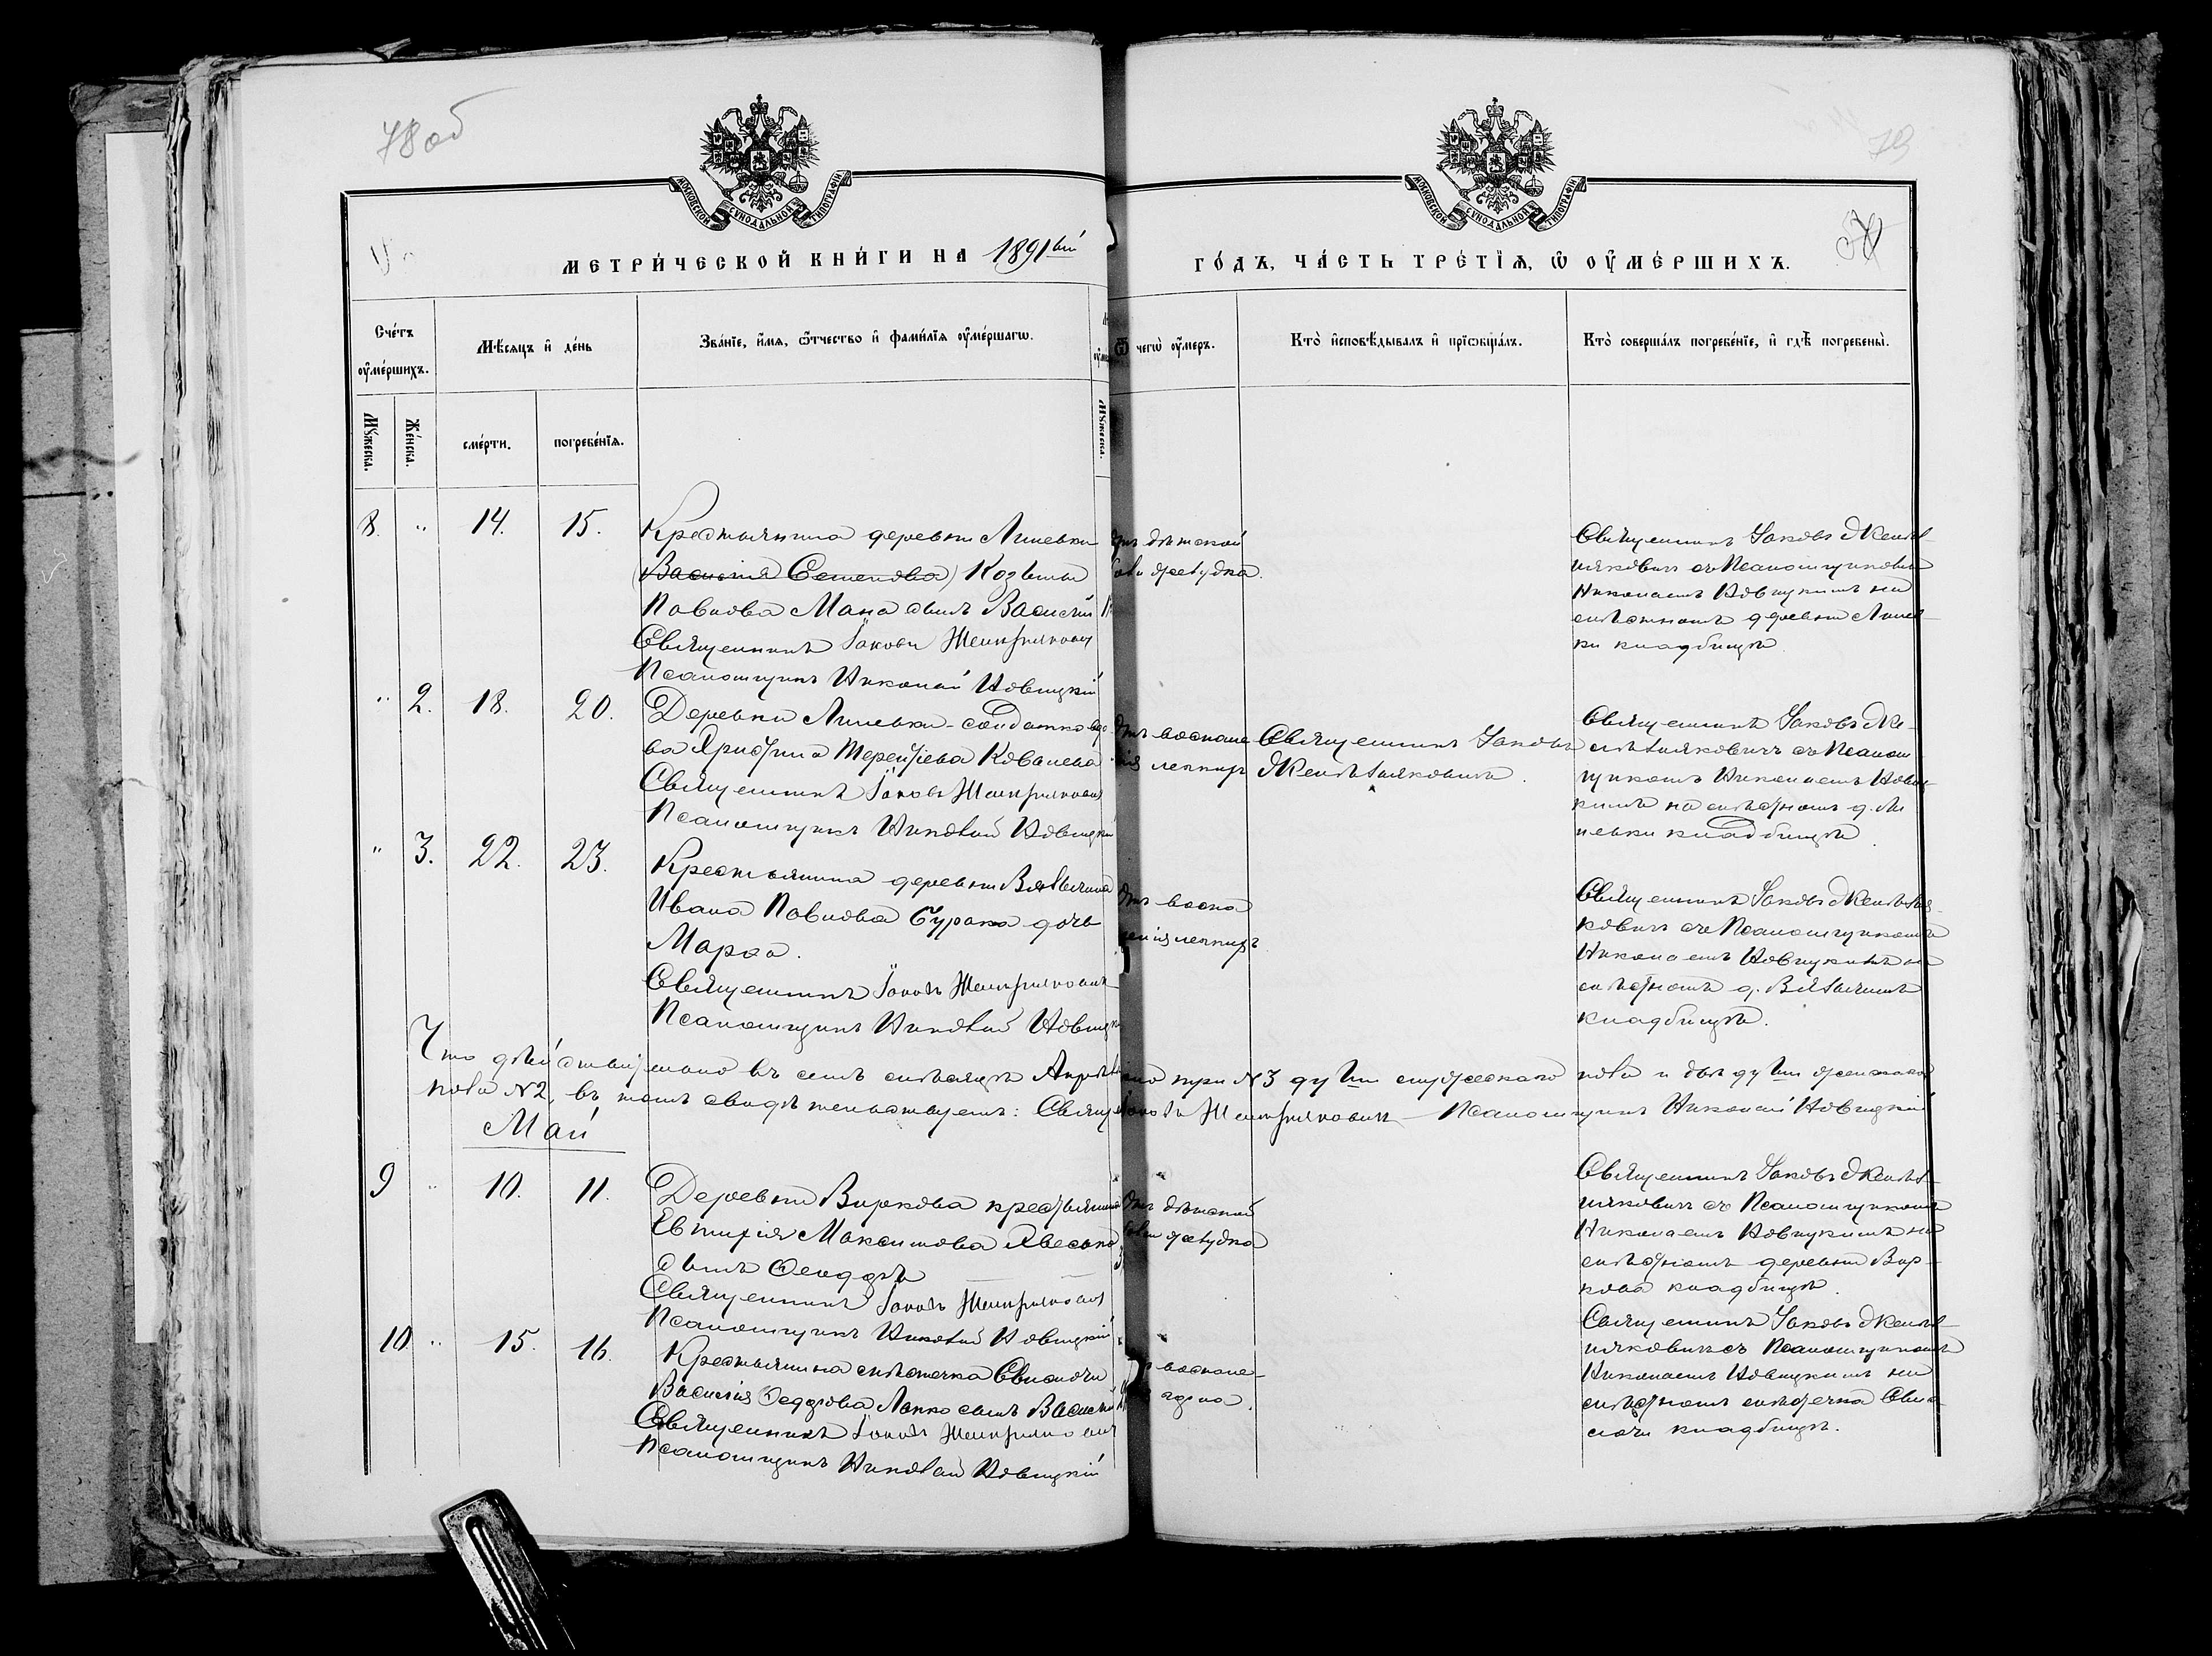 78 об
79
МОСКОВСКОЙ СУНОДАЛЬНОЙ ТИПОГРАФІИ
МОСКОВСКОЙ СУНОДАЛЬНОЙ ТИПОГРАФІИ
МЕТРИ́ЧЕСКОЙ КНИ́ГИ НА 1891ый
ГО́ДЪ, ЧА́СТЬ ТРЕ́ТІѦ, Ѽ ОУ҆МЕ́РШИХЪ.
Сче́тъ оу҆ме́ршихъ.
Мꙋ́жеска.
Же́нска.
Мѣ́сѧцъ и҆ де́нь
сме́рти.
погребе́нїѧ.
Зва́нїе, и҆́мѧ, ѻ҆́тчество и҆ фами́лїѧ оу҆ме́ршагѡ.
Мꙋ́жеска.
Ѿ чегѡ̀ оу҆́меръ.
Кто̀ и҆сповѣ́дывалъ и҆ прїѡбща́лъ.
Кто̀ соверша́лъ погребе́нїе, и҆ гдѣ̀ погребены̀.
8. " 14. 15.
Крестьянина деревни Липевки
(Василія Семенова) Козьмы
Павлова Мана сынъ Василій
Священникъ Іаковъ
Псаломщикъ Николай Новицкій
отъ дѣтской
боли желудка.
Священникъ Іаковъ
съ Псаломщикомъ
Николаемъ Новицкимъ на
мѣстномъ деревни Липев-
ки кладбищѣ.
" 2. 18. 20.
Деревни Липевки солдатка вдо
ва Христина Терентіева Ковалева
Священникъ Іаковъ
Псаломщикъ Николай Новицкій
отъ воспале
нія легкихъ
Священникъ Іаковъ
Священникъ Іаковъ
съ Псалом
щикомъ Николаемъ Новиц-
кимъ на мѣстномъ д. Ли
певки кладбищѣ.
" 3. 22. 23.
Крестьянина деревни
Ивана Павлова Бурака дочь
Марѳа.
Священникъ Іаковъ
Псаломщикъ Николай Новицкій
отъ воспа
ленія легкихъ
Священникъ Іаковъ
съ Псаломщикомъ
Николаемъ Новицкимъ на
мѣстномъ д.
кладбищѣ.
Что дѣйствительно въ семъ мѣсяцѣ Апрѣлѣ умерло при №3 души мужескаго пола и двѣ души женскаго
пола №2, въ томъ свидѣтельствуемъ: Священникъ Іаковъ Псаломщикъ Николай Новицкій
Май
9 " 10. 11.
Деревни Виркова крестьянина
Евтихія Максимова
сынъ Ѳеодоръ
Священникъ Іаковъ
Псаломщикъ Николай Новицкій
отъ дѣтской
боли желудка
Священникъ Іаковъ
съ Псаломщикомъ
Николаемъ Новицкимъ на
мѣстномъ деревни Вир-
кова кладбищѣ.
10 " 15. 16.
Крестьянина мѣстечка Свислочи
Василія Ѳедорова Лапко сынъ Василій
Священникъ Іаковъ
Псаломщикъ Николай Новицкій
воспале-
Священникъ Іаковъ
съ Псаломщикомъ
Николаемъ Новицкимъ на
мѣстномъ мѣстечка Свис-
лочи кладбищѣ.